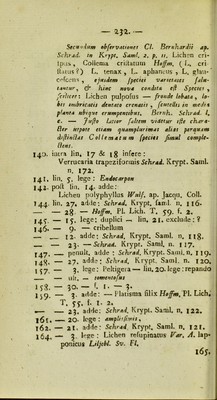 — 232. —
Secundum observationes Cl. Bernhardii ap.
Schrad. in Krypt. Saml. 2. p. 11. Lichen cri-
spus, Collema cristatum Hoffm. (L. cri-
status?) L. tenax, L. aphanoes, L. glau-
cescens, ejusdem speciei varietates salu-
tantur, & hinc nova condita est Species,
scilicet: Lichen pulposus — fronde lobata, lo-
bis imbricatis dentato crenatis, scutellis in medio
planta ubique erumpentibus, Bernh. Schrad. l.
c. — Juste later saltem videtur iste chara-
cter nepote etiam quamplurimas alias perquam
difficiles Collematum species simul comple-
ctens.
140. infra lin, 17 & 18 infere:
Verrucaria trapeziformis Schrad. Krypt. Saml.
n. 172.
141. lin. 5. lege: Endocarpon
142. post lin. 14. adde:
Lichen polyphyllus Wulf. ap. Jacqu. Coll.
144. lin. 27. adde: Schrad. Krypt. saml. n. 116.
— — 28. — Hoffm. Pl. Lich. T. 59. f. 2.
145. — 15. lege: duplici — lin. 21. exclude: ?
146. — 9. — cribellum
— — 12. adde: Schrad. Krypt. Saml. n. 118.
— — 23. — Schrad. Krypt. Saml. n. 117.
147. — penult. adde: Schrad. Krypt. Saml. n. 119.
148. — 27. adde: Schrad. Krypt. Saml. n. 120.
157. — 3. lege: Peltigera — lin. 20. lege: repando
— — ult. — tomentosus
158. — 30. — f. 1. — 3.
159. — 3. adde: — Platisma filix Hoffm. Pl. Lich.
T. 55. f. 1. 2.
— — 23. adde: Schrad. Krypt. Saml. n. 122.
161. — 20. lege: amplissimis.
162. — 21. adde: Schrad. Krypt. Saml. n. 121.
164. — 3. lege: Lichen resupinatus Var. A. lap-
ponicus Liljebl. Sv. Fl.
165.